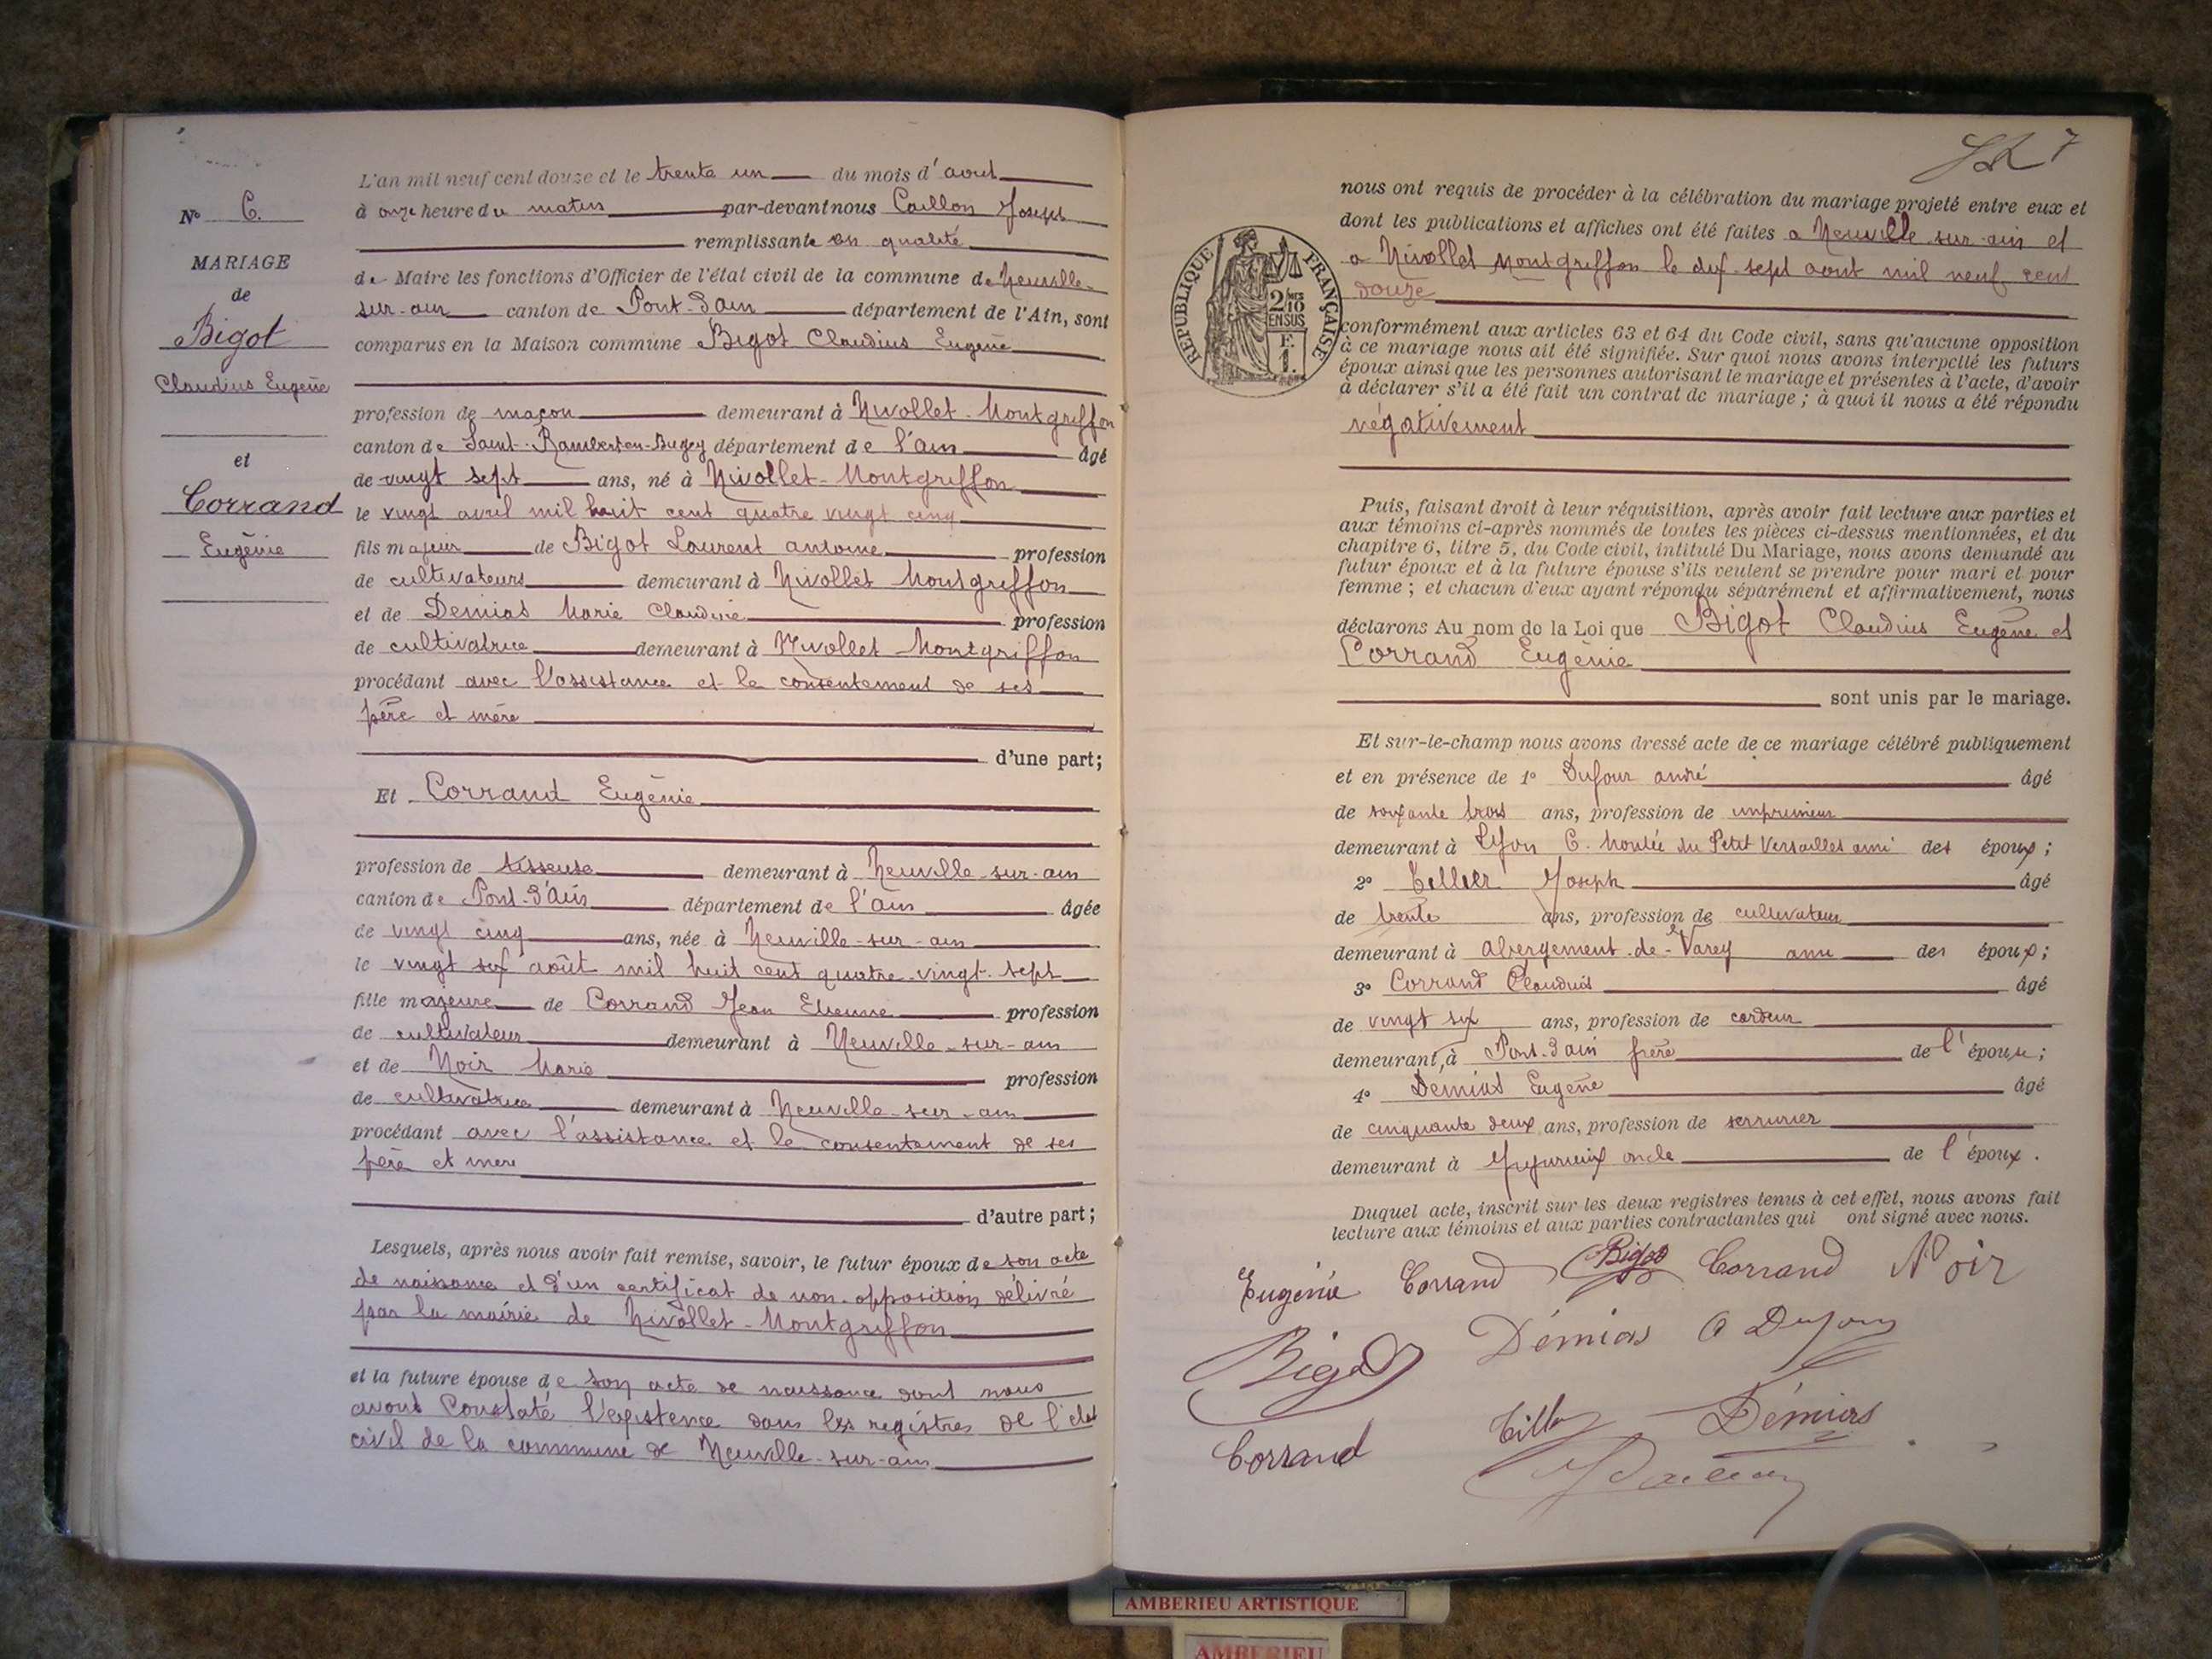 L'an mil neuf cent douze et le trente un du mois d'aout
N° 6. à onze heure du matin par-devant nous Caillon Joseph
remplissant en qualité
MARIAGE
de Maire les fonctions d'Officier de l'état civil de la commune de Neuville-
de
sur-ain canton de Pont-d'ain département de l'Ain, sont
Bigot
comparus en la Maison commune Bigot Claudius Eugène
Claudius Eugène
profession de maçon demeurant à Nivollet-Montgriffon
canton de Saint-Rambert-en-Bugey département de l'ain âgé
et
de vingt sept ans, né à Nivollet-Montgriffon
Corrand
le vingt avril mil huit cent quatre vingt cinq
Eugénie
fils majeur de Bigot Laurent antoine profession
de cultivateurs demeurant à Nivollet Montgriffon
et de Demias Marie Claudine profession
de cultivatrice demeurant à Nivollet-Montgriffon
procédant avec l'assistance et le consentement de ses
père et mère
d'une part;
Et Corrand Eugénie
profession de tisseuse demeurant à Neuville-sur-ain
canton de Pont-d'ain département de l'ain âgée
de vingt cinq ans, née à Neuville-sur-ain
le vingt six août mil huit cent quatre-vingt-sept
fille majeure de Corrand Jean Etienne profession
de cultivateur demeurant à Neuville-sur-ain
et de Noir Marie profession
de cultivatrice demeurant à Neuville-sur-ain
procédant avec l'assistance et le consentement de ses
père et mere
d'autre part;
Lesquels, après nous avoir fait remise, savoir, le futur époux de son acte
de naissance et d'un certificat de non-opposition délivré
par la mairie de Nivollet-Montgriffon
et la future épouse de son acte de naissance dont nous
avons constaté l'existence dans les registres de l'état
civil de la commune de Neuville-sur-ain
7
nous ont requis de procéder à la célébration du mariage projeté entre eux et
dont les publications et affiches ont été faites a Neuville sur-ain et
a Nivollet Montgriffon le dix-sept aout mil neuf cent
douze
RÉPUBLIQUE FRANÇAISE
2/10 ENSUS
F.
1.
conformément aux articles 63 et 64 du Code civil, sans qu'aucune opposition
à ce mariage nous ait été signifiée. Sur quoi nous avons interpellé les futurs
époux ainsi que les personnes autorisant le mariage et présentes à l'acte, d'avoir
à déclarer s'il a été fait un contrat de mariage ; à quoi il nous a été répondu
négativement
Puis, faisant droit à leur réquisition, après avoir fait lecture aux parties et
aux témoins ci-après nommés de toutes les pièces ci-dessus mentionnées, et du
chapitre 6, titre 5, du Code civil, intitulé Du Mariage, nous avons demandé au
futur époux et à la future épouse s'ils veulent se prendre pour mari et pour
femme ; et chacun d'eux ayant répondu séparément et affirmativement, nous
déclarons Au nom de la Loi que Bigot Claudius Eugène et
Corrand Eugénie
sont unis par le mariage.
Et sur-le-champ nous avons dressé acte de ce mariage célébré publiquement
et en présence de 1° Dufour andré âgé
de soixante trois ans, profession de imprimeur
demeurant à Lyon 6. Montée du Petit Versailles ami des époux ;
2° Tellier Joseph âgé
de trente ans, profession de cultivateur
demeurant à abergement-de-Varey ami des époux;
3° Corrand Claudius âgé
de vingt six ans, profession de cardeur
demeurant à Pont-d'ain frère de l'épouse;
4° Demias Eugène âgé
de cinquante deux ans, profession de serrurier
demeurant à Jujurieux oncle de l'époux.
Duquel acte, inscrit sur les deux registres tenus à cet effet, nous avons fait
lecture aux témoins et aux parties contractantes qui ont signé avec nous.
Eugénie Corrand Bigot Corrand Noir
Bigot Démias A Dufour
Démias
Corrand
AMBERIEU ARTISTIQUE
AMBERIEU